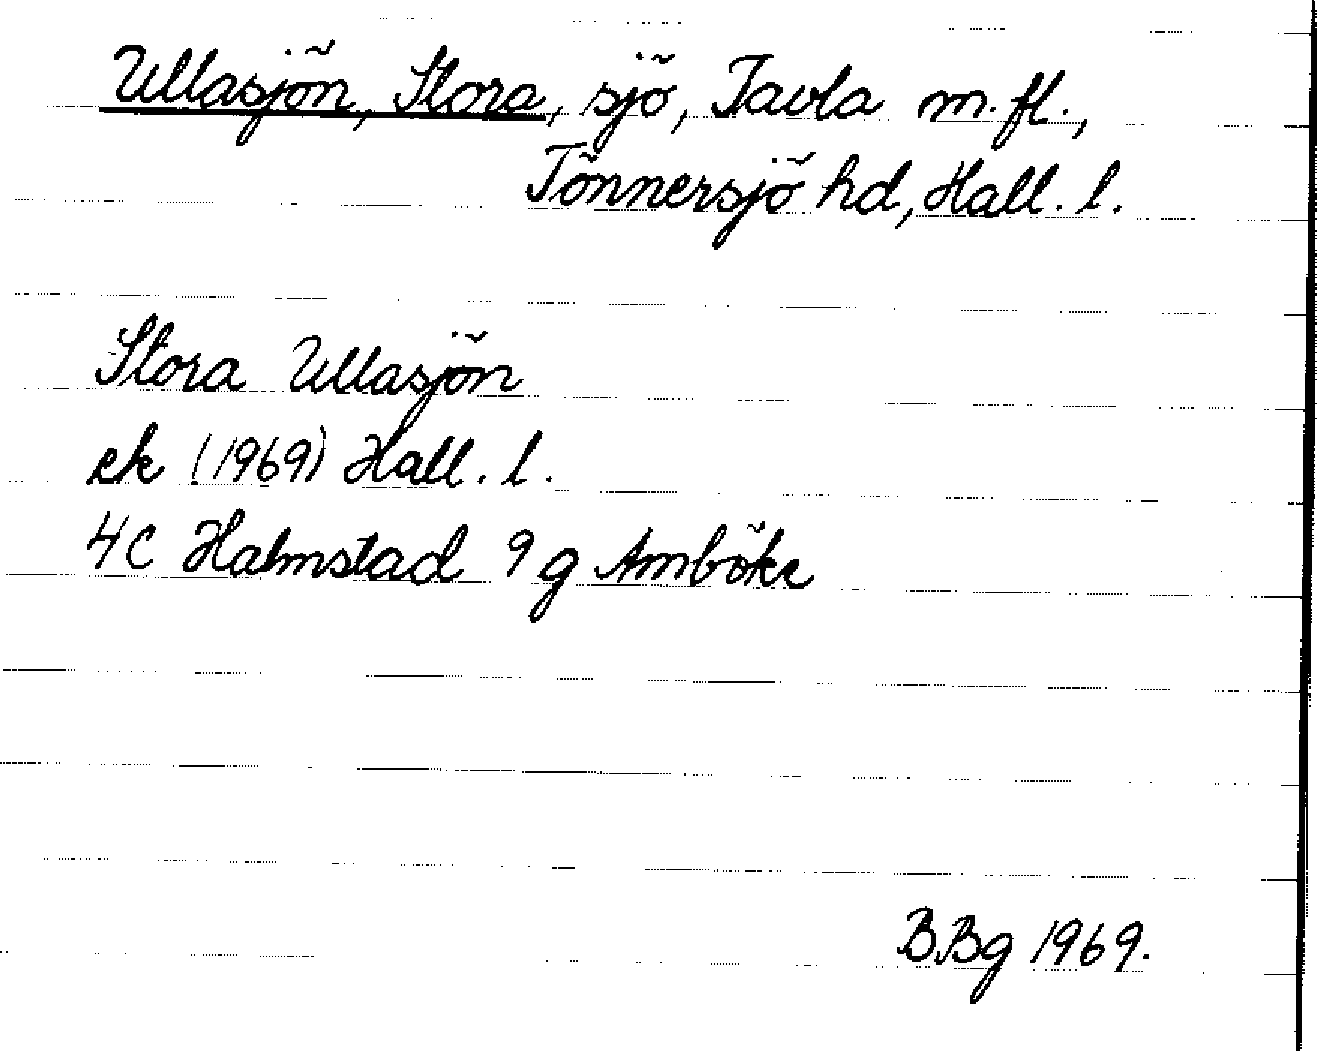 Ullasjön, Stora, sjö, Tavla m. fl.,
Tönnersjö hd, Hall. l.
Stora Ullasjön
ek (1969) Hall. l.
4C Halmstad 9 g Amböke
BBg 1969.